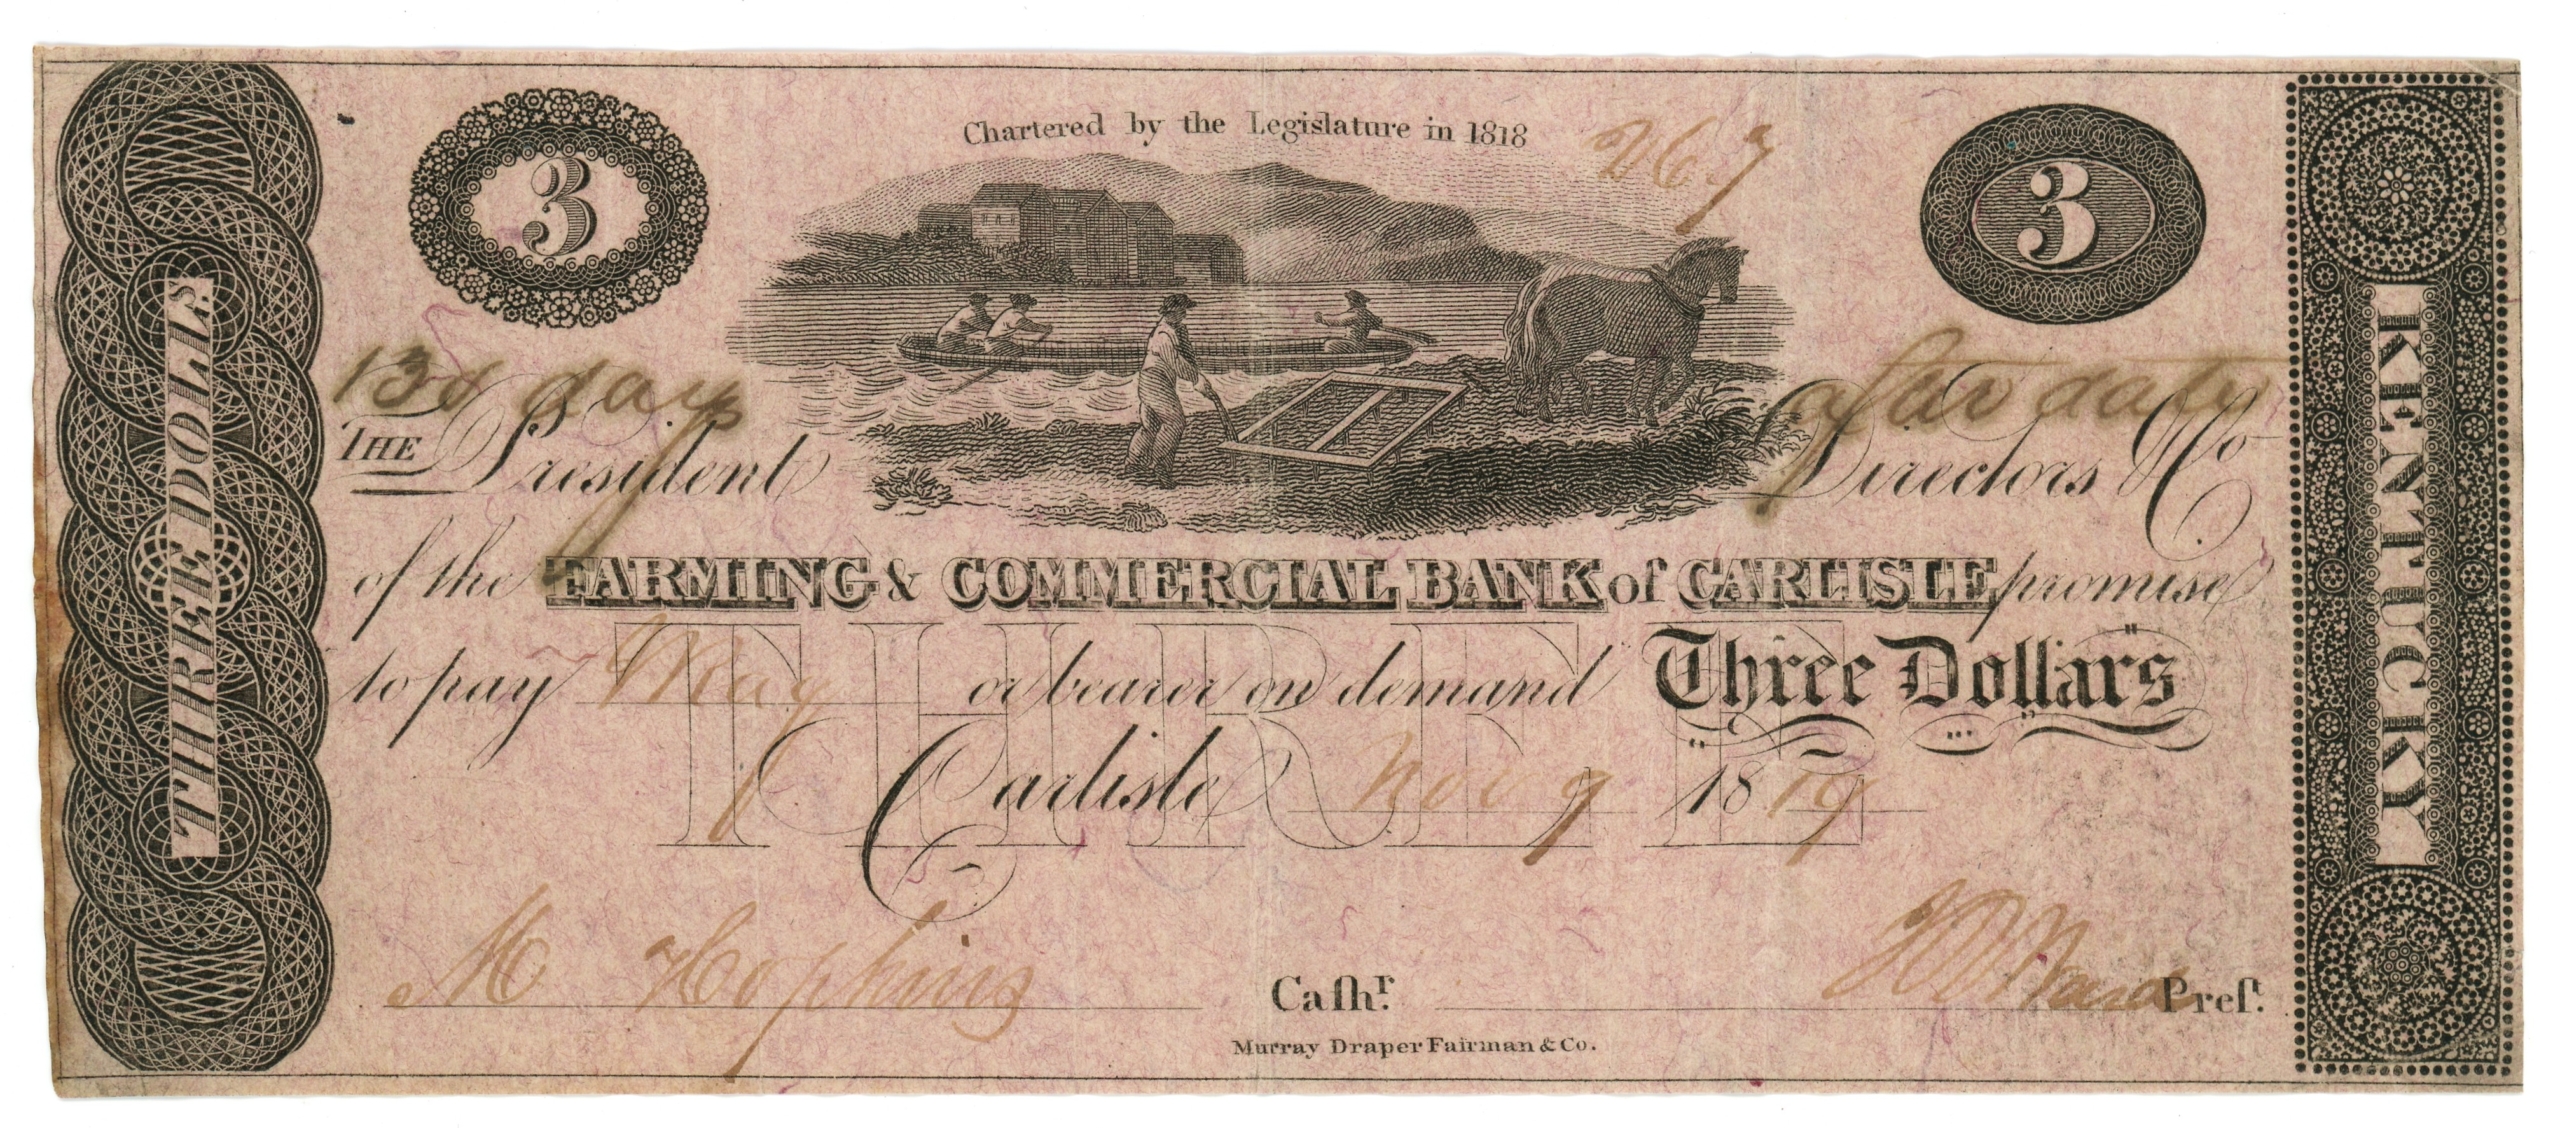 Chartered by the Legislature in 1818
267
3
3
THREE DOLLS
KENTUCKY
130 days after date
THE President Directors & Co
of the FARMING & COMMERCIAL BANK of CARLISLE promise
to pay May or bearer on demand Three Dollars
THREE
Carlisle Nov 9 1819
M Hopkins Caſhr. Preſt.
Murray Draper Fairman & Co.